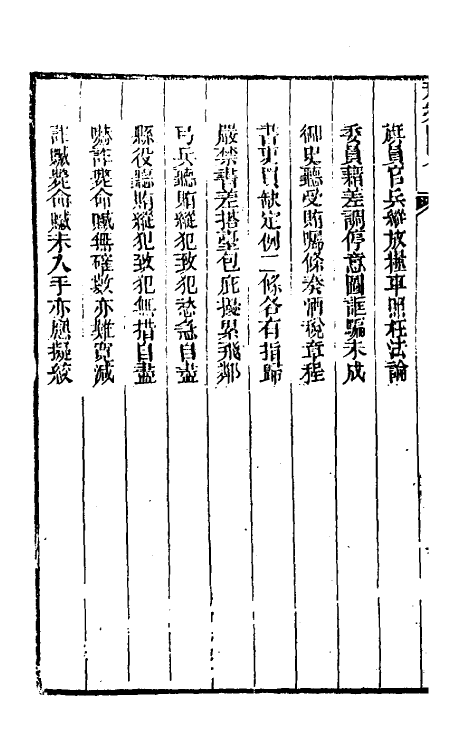 旗員官兵縱放糧車照枉法論
委員藉差調停意圖誆騙未成
御史聽受賄囑條奏酒稅章程
書吏買缺定例二條各有指歸
嚴禁書差搭臺包庇擾累飛鄰
弓兵聽賄縱犯致犯愁急自盡
縣役聽賄縱犯致犯無措自盡
嚇詐斃命贓無確數亦難寬減
詐贓斃命贓未入手亦應擬絞